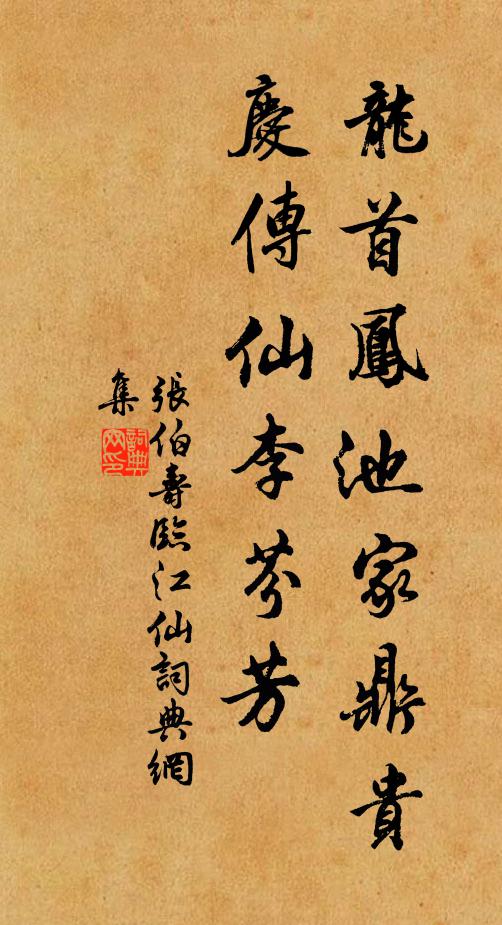 龍首鳳池家鼎貴
慶傳仙李芬芳
張伯壽臨江仙詞典網
集
詞典
网印